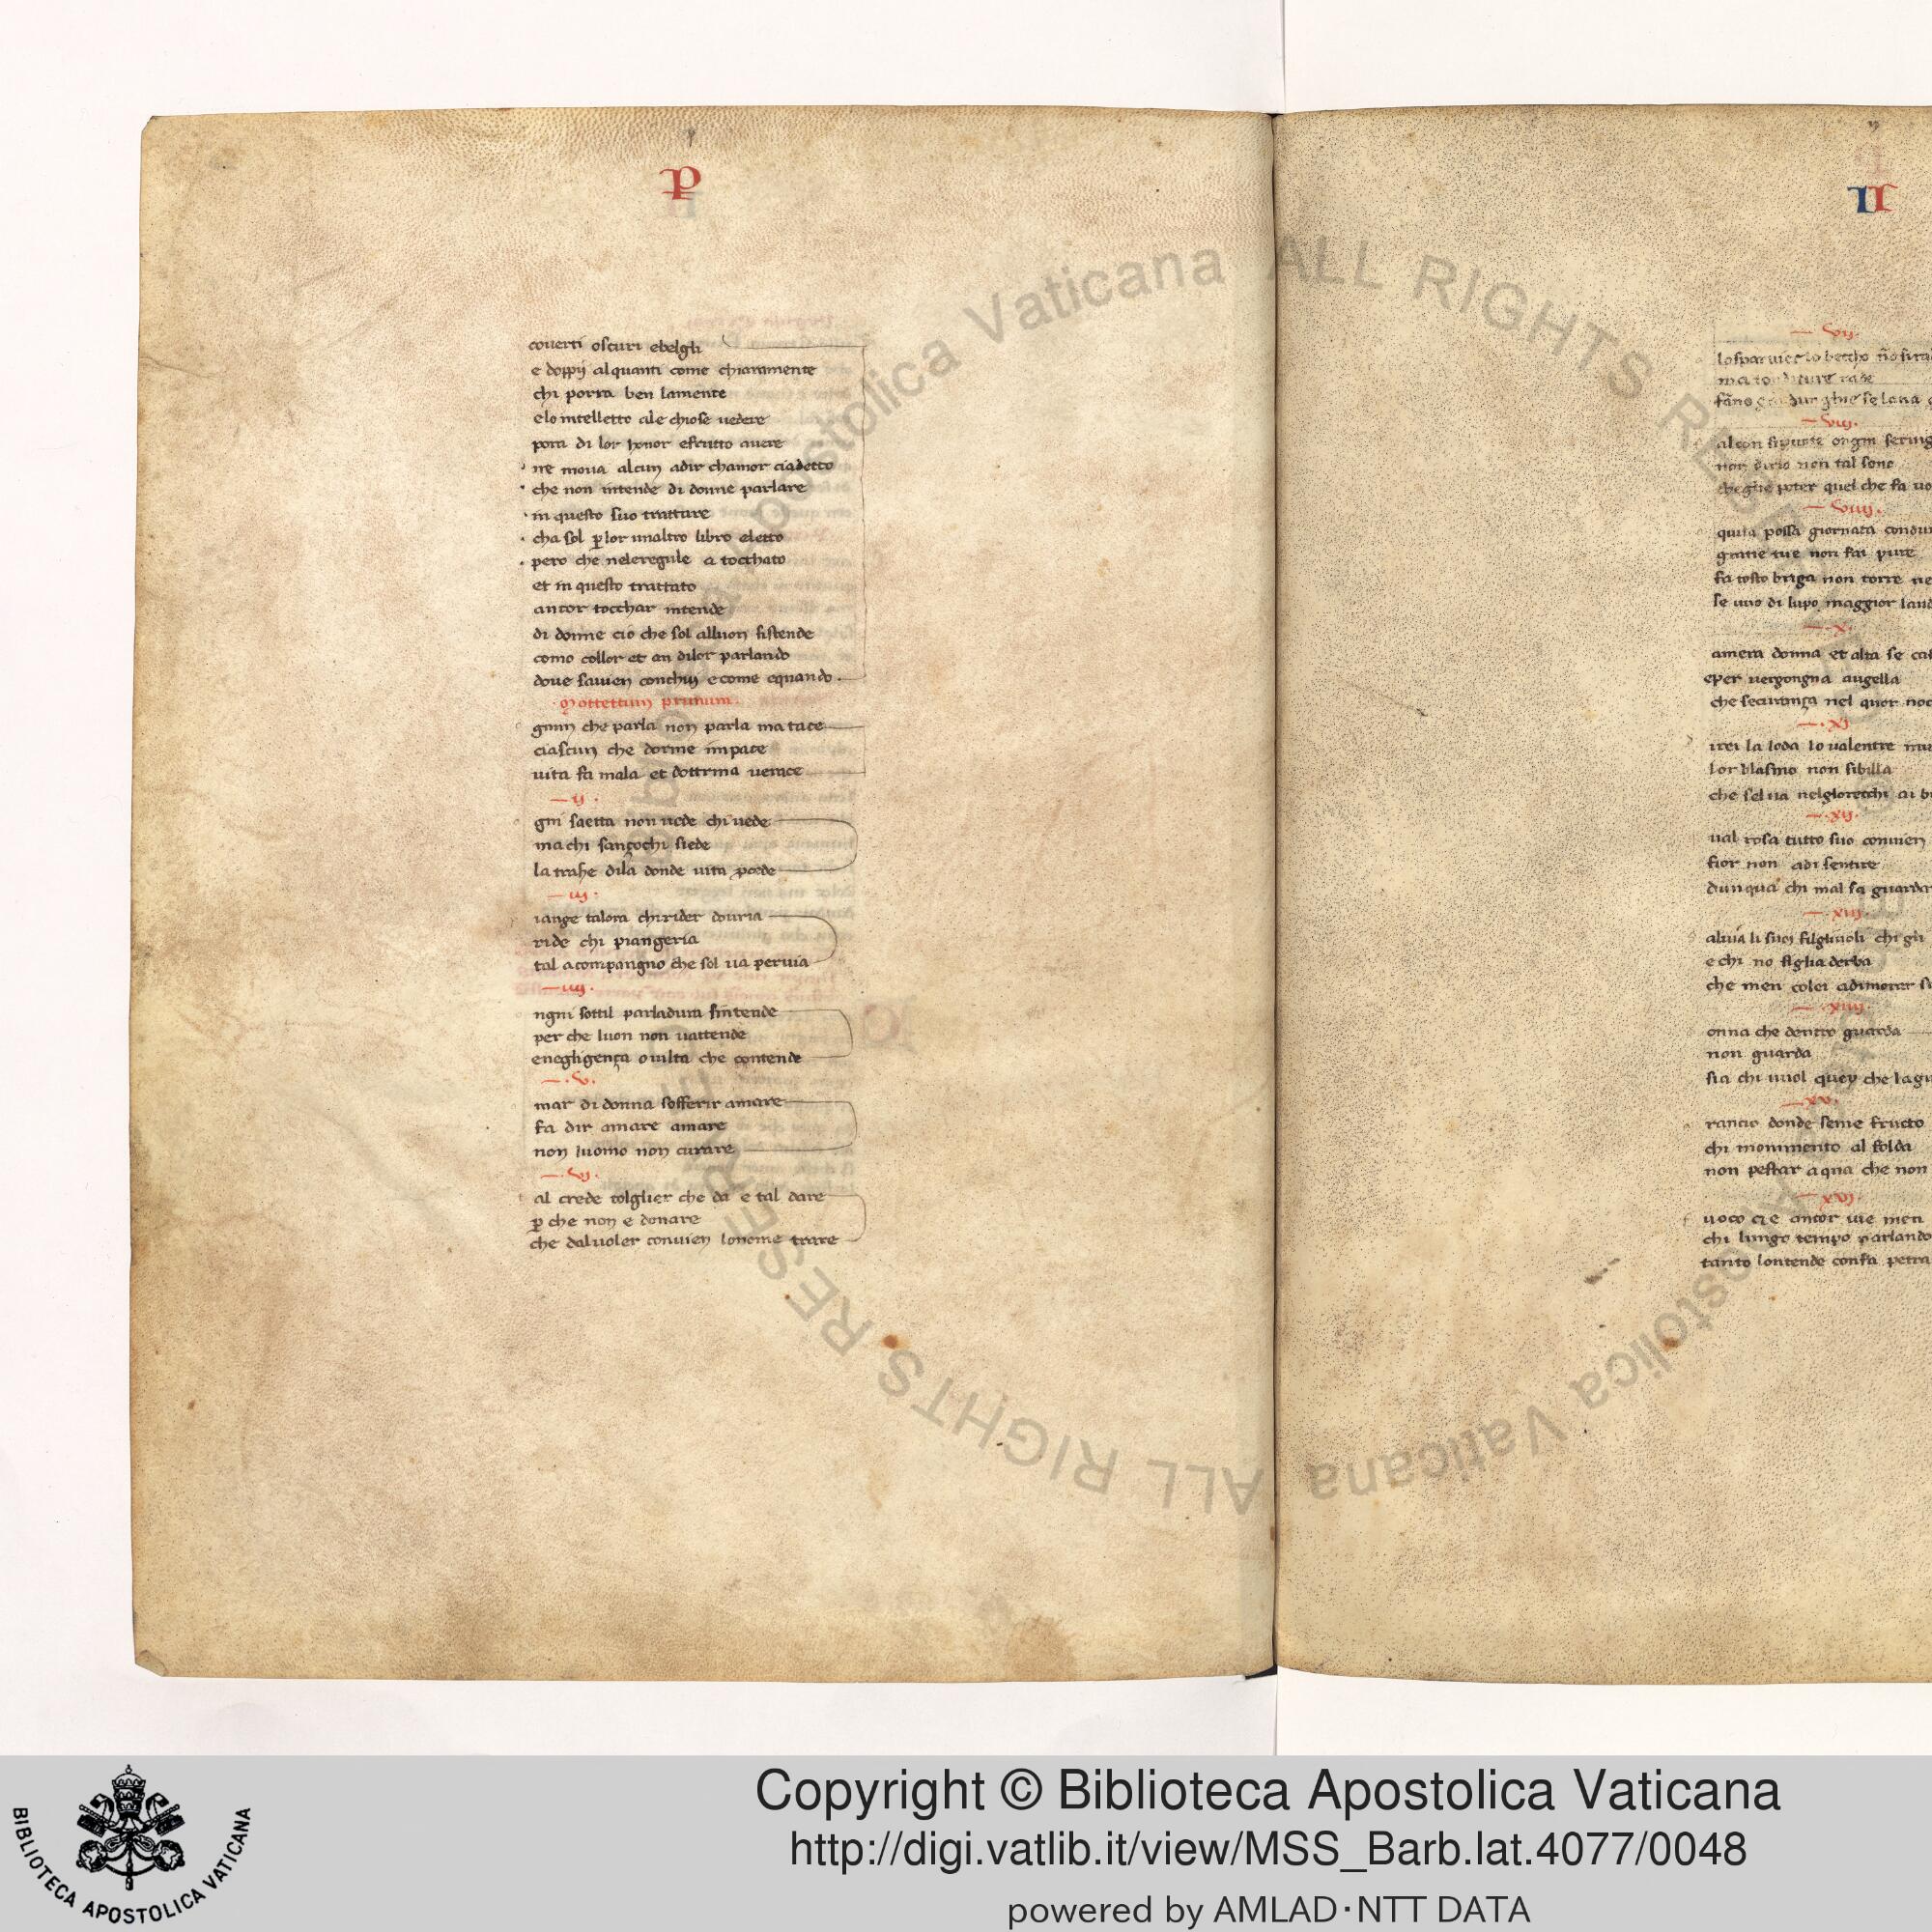 P
couerti oscuri ebelgli
e doppij alquanti come chiaramente
chi porra ben lamente
elo intelletto ale chiose uedere
pora di lor honor efrutto auere
ne moua alcun adir chamor ciadetto
che non intende di donne parlare
in questo suo trattare
cha sol p lor unaltro libro eletto
pero che neleregule a tocchato
et in questo trattato
ancor tocchar intende
di donne cio che sol alluon sistende
como collor et an dilor parlando
doue sauien conchiu ecome equando.
Mottettum primum.
gnun che parla non parla ma tace
ciascun che dorme inpace
uita fa mala et dottrina uerace
ij.
gni saetta non uede chi uede
ma chi sançochi siede
la trahe dila donde uita pcede
iij.
iange talora chi rider douria
ride chi piangeria
tal acompangno che sol ua peruia
iiij.
ngni sottil parladura sintende
per che luon non uattende
enegligença o uilta che contende
.v.
mar di donna sofferir amare
fa dir amare amare
non luomo non curare
.vj.
al crede tolglier che da e tal dare
p che non e donare
che daluoler conuien lonome trare
II
vij.
lo beccho
viij.
non tal sono
poter quel che fa
viiij.
quita possa giornata
gratie tue non fai pure
fa tosto briga non torre
se uno di lupo maggior
.x.
amera donna et alta se
eper uergongna augella
che securança nel quor
.xj.
irei la loda lo ualentre
lor blasmo non sibilla
che sel ua nelglorecchi ai
.xij.
ual rosa tutto suo conuien
fior non adi sentire
dunqua chi mal sa
.xiij.
aluia li suoi filgliuoli chi gli
e chi no figlia derba
che men colei adimorar
.xiiij.
onna che dentro guarda
non guarda
sia chi uuol quey che
.xv.
rancio donde seme fructo
chi mommento al folda
non pestar aqua che non
.xvj.
uoco ancor uie men
chi lungo tempo parlando
tanto lontende confa petra
Biblioteca Apostolica Vaticana ALL RIGHTS RESERVED
Biblioteca Apostolica Vaticana ALL RIGHTS RESERVED
BIBLIOTECA APOSTOLICA VATICANA
Copyright © Biblioteca Apostolica Vaticana
http://digi.vatlib.it/view/MSS_Barb.lat.4077/0048
powered by AMLAD·NTT DATA